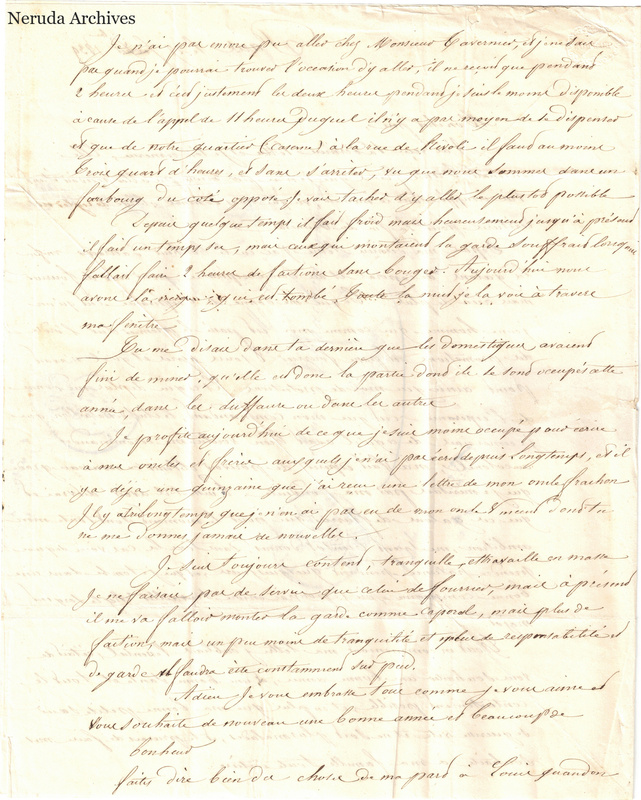 Neruda Archives
Je n'ai pas encore pu aller chez Monsieur Tavernier, et je ne sais
pas quand je pourrai trouver l'occasion d'y aller, il ne reçoit que pendant
2 heures et c'est justement les deux heures pendant je suis le moins disponible
à cause de l'appel de 11 heures duquel il n'y a pas moyen de se dispenser
et que de notre quartier (caserne) à la rue de Rivoli il faud au moins
trois quart d'heures, et sans s'arrêter, vu que nous sommes dans un
faubourg du coté opposé je vais tacher d'y aller le plustot possible
Depuis quelque temps il fait froid mais heureusement jusqu'à présent
il fait un temps sec, mais ceux qui montaient la garde souffrais lorsqu'il
fallait faire 2 heures de factions sans bouger. Aujourd'hui nous
avons la neige qui est tombé toute la nuit je la vois à travers
ma fenêtre
Tu me disais dans ta dernière que les domestiques avaient
fini de miner, qu'elle est donc la partie dond ils se sond occupés cette
année, dans les ou dans les autres
Je profite aujourd'hui de ce que je suis moins occupé pour écrire
à mes oncles et frère auxquels je n'ai pas écrit depuis longtemps, et il
y a déjà une quinzaine que j'ai reçu une lettre de mon oncle frachon
Il y a longtemps que je n'en ai pas eu de mon oncle dond tu
ne me donnes jamais de nouvelles.
Je suis toujours contend, tranquille, et travaille en masse
Je ne faisais pas de service que celui de fourrier, mais à présend
il me va falloir monter la garde comme caporal, mais plus de
faction, mais un peu moins de tranquilité et plus de responsabilité et
de garde il faudra être constamment sur pied.
Adieu Je vous embrasse tous comme je vous aime et
vous souhaite de nouveau une bonne année et beaucoup de
bonheur
faites dire bien des choses de ma pard à Louis